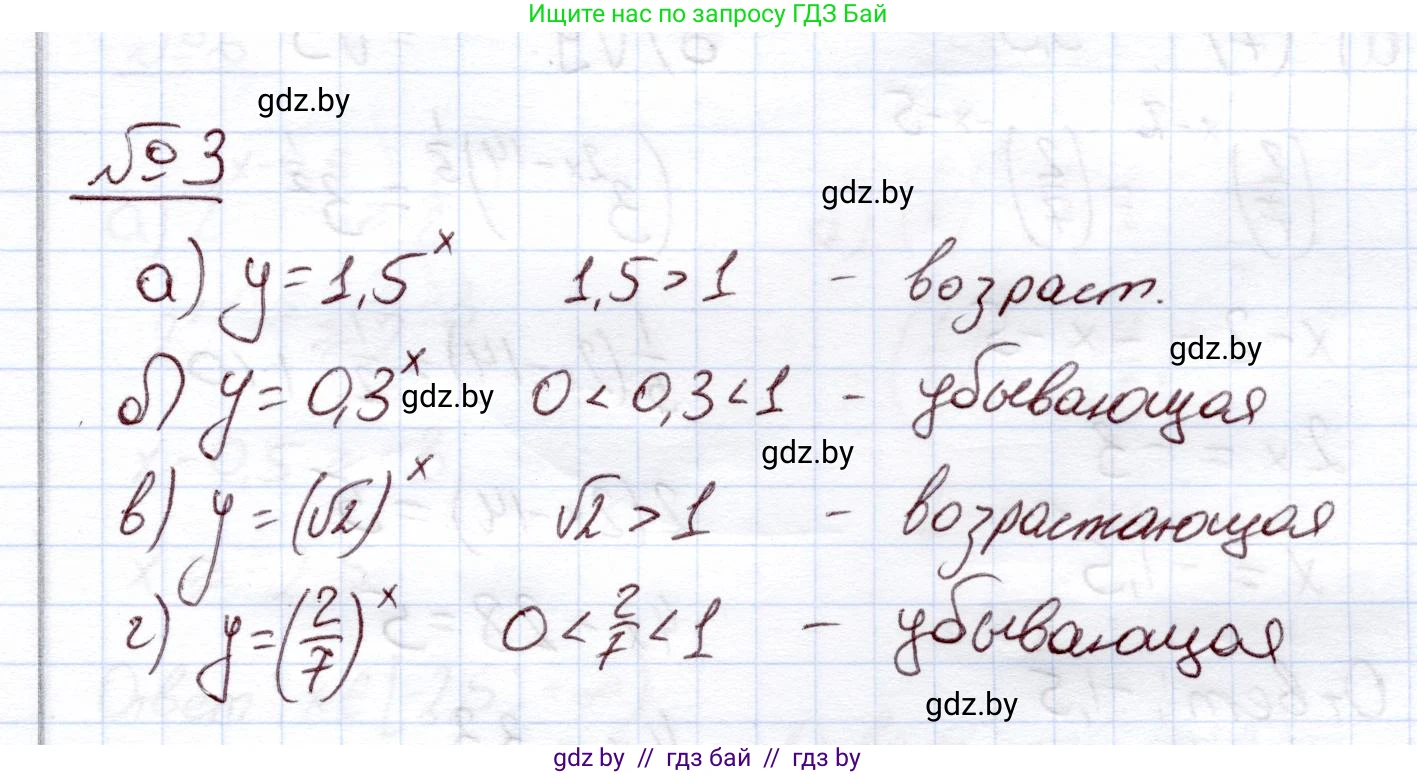 Ищите нас по запросу ГДЗ Бай
gdz.by
№ 3
gdz.by
а) y = 1,5^x 1,5 > 1 - возраст.
gdz.by
б) y = 0,3^x gdz.by 0 < 0,3 < 1 - убывающая
gdz.by
в) y = (√2)^x √2 > 1 - возрастающая
г) y = (2/7)^x 0 < 2/7 < 1 - убывающая
gdz.by
gdz.by // гдз бай // гдз by